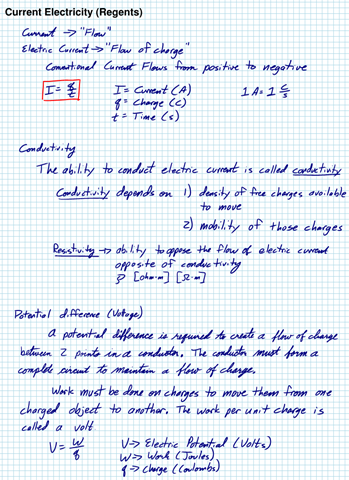 Current Electricity (Regents)
Current → "Flow"
Electric Current → "Flow of charge"
Conventional Current Flows from positive to negative
I = q/t I = Current (A) 1 A = 1 C/s
q = Charge (C)
t = Time (s)
Conductivity
The ability to conduct electric current is called conductivity
Conductivity depends on 1) density of free charges available
to move
2) mobility of those charges
Resistivity → ability to oppose the flow of electric current
opposite of conductivity
ρ [ohm·m] [Ω·m]
Potential difference (Voltage)
A potential difference is required to create a flow of charge
between 2 points in a conductor. The conductor must form a
complete circuit to maintain a flow of charge.
Work must be done on charges to move them from one
charged object to another. The work per unit charge is
called a volt
V = W/q V → Electric Potential (Volts)
W → Work (Joules)
q → Charge (Coulombs)